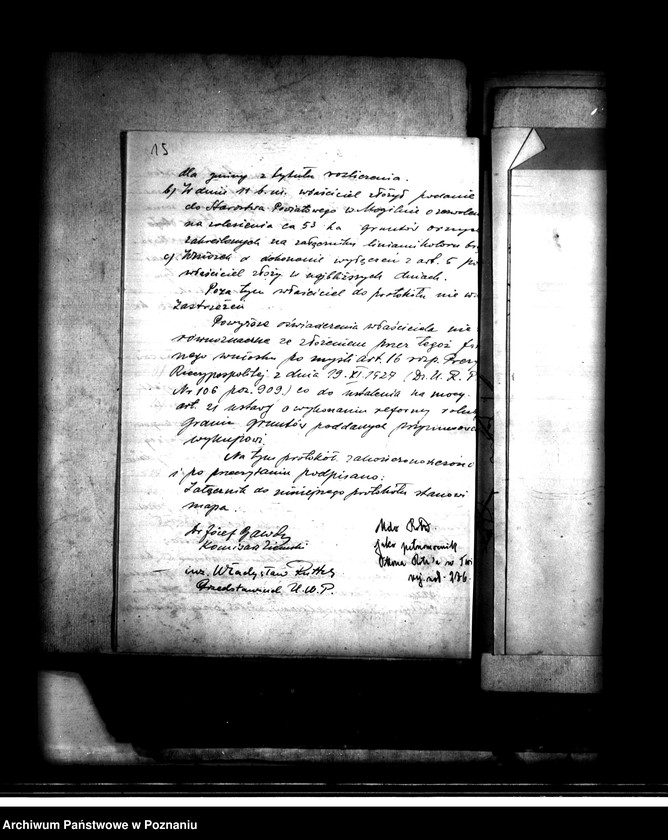 15
dla gminy z tytułu rozliczenia.
b) W dniu 11 b.m. właściciel złożył podanie
do Starostwa Powiatowego w Mogilnie o zezwolen
na zalesienie ca 53 ha gruntów ornych
zakreślonych na załączniku liniami koloru
c) Wniosek o dokonanie wyłączeń z art. 5
właściciel złoży w najbliższych dniach.
Poza tym właściciel do protokółu nie
zastrzeżeń
Powyższe oświadczenie właściciela nie
równoznaczne ze złożeniem przez tegoż
nego wniosku po myśli art. 16 rozp. Prez
Rzeczypospolitej z dnia 19.XI.1927 (Dz. U. R. P
Nr 106 poz. 909.) co do ustalenia na mocy
art. 21 ustawy o wykonaniu reformy rolnej
granic gruntów poddanych przymusow
wykupowi.
Na tym protokół zakończono
i po przeczytaniu podpisano:
Załącznik do niniejszego protokółu stanowi
mapa
Dr Józef Gawdy
Komisarz Ziemski
inż. Władysław
Przedstawiciel U.W.P.
jako pełnomocnik
w